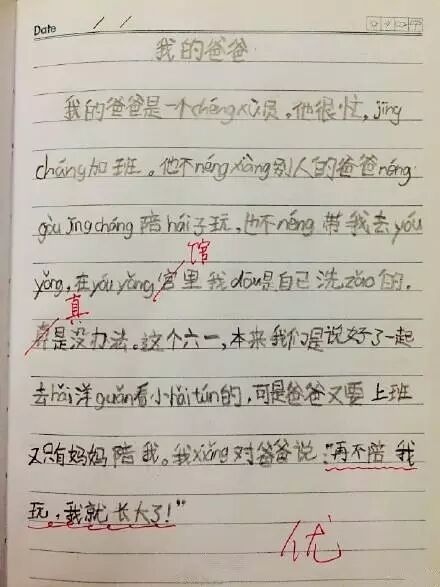 Date / /
我的爸爸
我的爸爸是一个chéng xù员。他很忙,jīng
cháng加班。他不néng xiàng别人的爸爸néng
gòu jīng cháng 陪hái子玩,也不néng 带我去yóu
馆
yǒng,在yóu yǒng官里我dōu是自己洗zǎo的。
真
是没办法。这个六一,本来我们是说好了一起
去hǎi洋guǎn看小hǎi tún的,可是爸爸又要上班
又只有妈妈陪我。我xiǎng对爸爸说:"再不陪我
玩,我就长大了!"
优